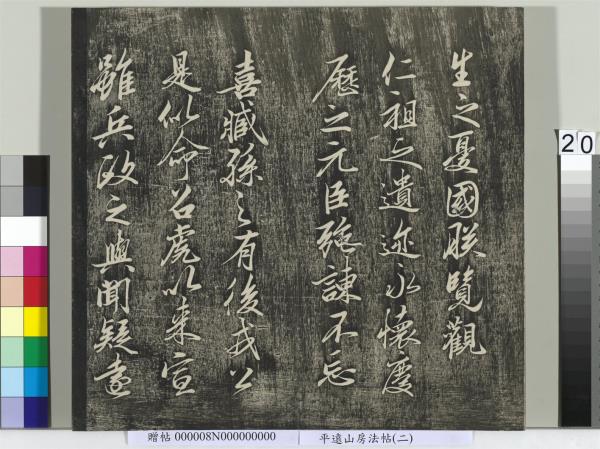 生之憂國朕覽觀
仁祖之遺迹永懷慶
歷之元臣強諫不忘
喜臧孫之有後戎公
是似命召虎以來宣
雖兵政之與聞疑遠
20
贈帖 000008N000000000 平遠山房法帖(二)